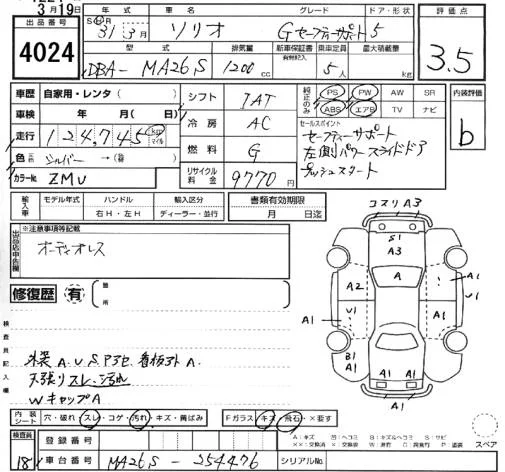 3月19日
出品番号
4024
年式 車名 グレード ドア・形状
31年3月 ソリオ Gセーフティーサポート 5
評価点
3.5
型式 排気量 新車保証書 乗車定員 最大積載量
有無記入
DBA- MA26S 1200cc 5人 kg
車歴 自家用・レンタ( )
車検 年 月( 日)
走行 124,745 km マイル
色 元色 シルバー → (替 )
カラーNo. ZMU
シフト 7AT
冷房 AC
燃料 G
リサイクル料金 9770円
純正のみ
PS PW AW SR
ABS エアB TV ナビ
内装評価
b
セールスポイント
セーフティーサポート
左側パワースライドドア
プッシュスタート
輸入車 モデル年式 ハンドル 輸入区分
右H・左H ディーラー・並行
書類有効期限
月 日迄
出品店申告欄
※注意事項等記載
オーディオレス
修復歴 有
箇所
コスリA3
S1
A3
A
A2
A1
U1
U1
A1
A1
B1
A1
A1
A1
A1
検査員記入欄
外装A.U.S Pヨゴレ 看板アトA.
天張りスレ、汚れ
WキャップA
内装シート 穴・破れ・スレ・コゲ・汚れ・キズ・黄ばみ
Fガラス キズ・飛石・×要す
A:キズ 凹:ヘコミ B:キズ&ヘコミ S:サビ
××:交換済 ×:交換 W:波打 C:腐食 P:塗装
スペア
検査員
181
登録番号
車台番号 MA26S-254476 シリアルNo.